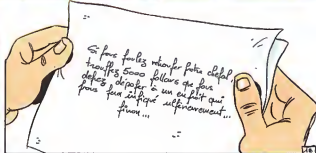 Si fous foulez retroufer fotre chefal,
trouffez 5000 follars que fous
defez déposer à un enfroit qui
fous fera infiqué ulfinerement...
finon...
18